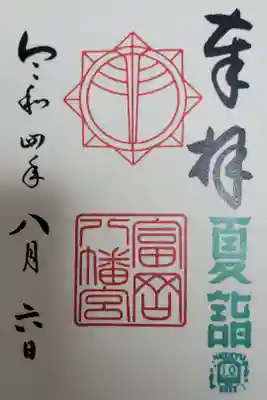 奉拝
夏詣
10
富岡
八幡宮
令和四年八月六日